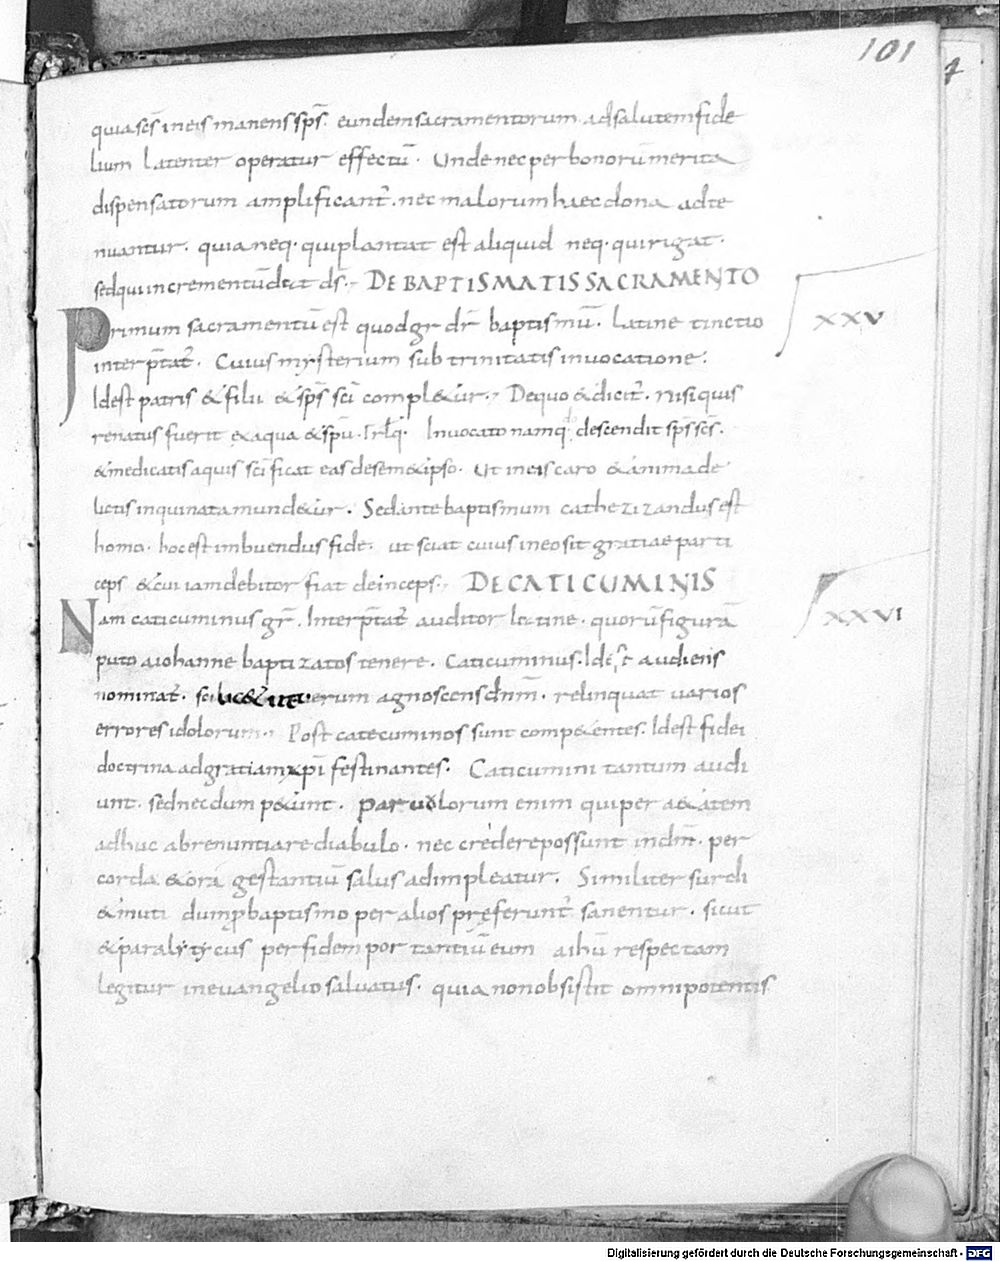 101
quia scs̄ in eis manens sps̄. eundem sacramentorum ad salutem fide
lium latenter operatur effectū. Unde nec per bonorū merita
dispensatorum amplificant᷑. nec malorum haec dona adte
nuantur. quia neq· qui plantat est aliquid neq· qui rigat·
sed qui incrementū dat ds̄. DE BAPTISMATIS SACRAMENTO
XXV
Primum sacramentū est quod gr̄ dr̄ baptismū. Latine tinctio
interp̄tat᷑. Cuius mysterium sub trinitatis invocatione.
Id est patris & filii & sps̄ sc̄i compl&ur. De quo & dicit᷑. nisi quis
renatus fuerit ex aqua & spū. Invocato namq· descendit sps̄ scs̄.
& medicatis aquis sc̄ificat eas de sem&ipso. Ut in eis caro & anima de
lictis inquinata mund&ur. Sed ante baptismum cathezizandus est
homo. hoc est imbuendus fide. ut sciat cuius in eo sit gratiae parti
ceps & cui iam debitor fiat deinceps. DE CATICUMINIS
XXVI
Nam caticuminus gr̄. Interp̄tat᷑ auditor latine. quorū figurā
puto a iohanne baptizatos tenere. Caticuminus. Id est audiens
nominat᷑. scilic& ut verum agnoscens dnm̄. relinquat varios
errores idolorum. Post catecuminos sunt comp&entes. Id est fidei
doctrina ad gratiam xp̄i festinantes. Caticumini tantum audi
unt. sed necdum p&unt. parvolorum enim qui per a&atem
adhuc abrenuntiare diabulo. nec credere possunt in dm̄. per
corda & ora gestantiū salus adimpleatur. Similiter surdi
& muti dum p baptismo per alios pręferunt᷑ sanentur. sicut
& paralyticus per fidem portantiū eum a ihū respectam
legitur in evangelio salvatus. quia non obsistit omnipotentis
Digitalisierung gefördert durch die Deutsche Forschungsgemeinschaft - DFG